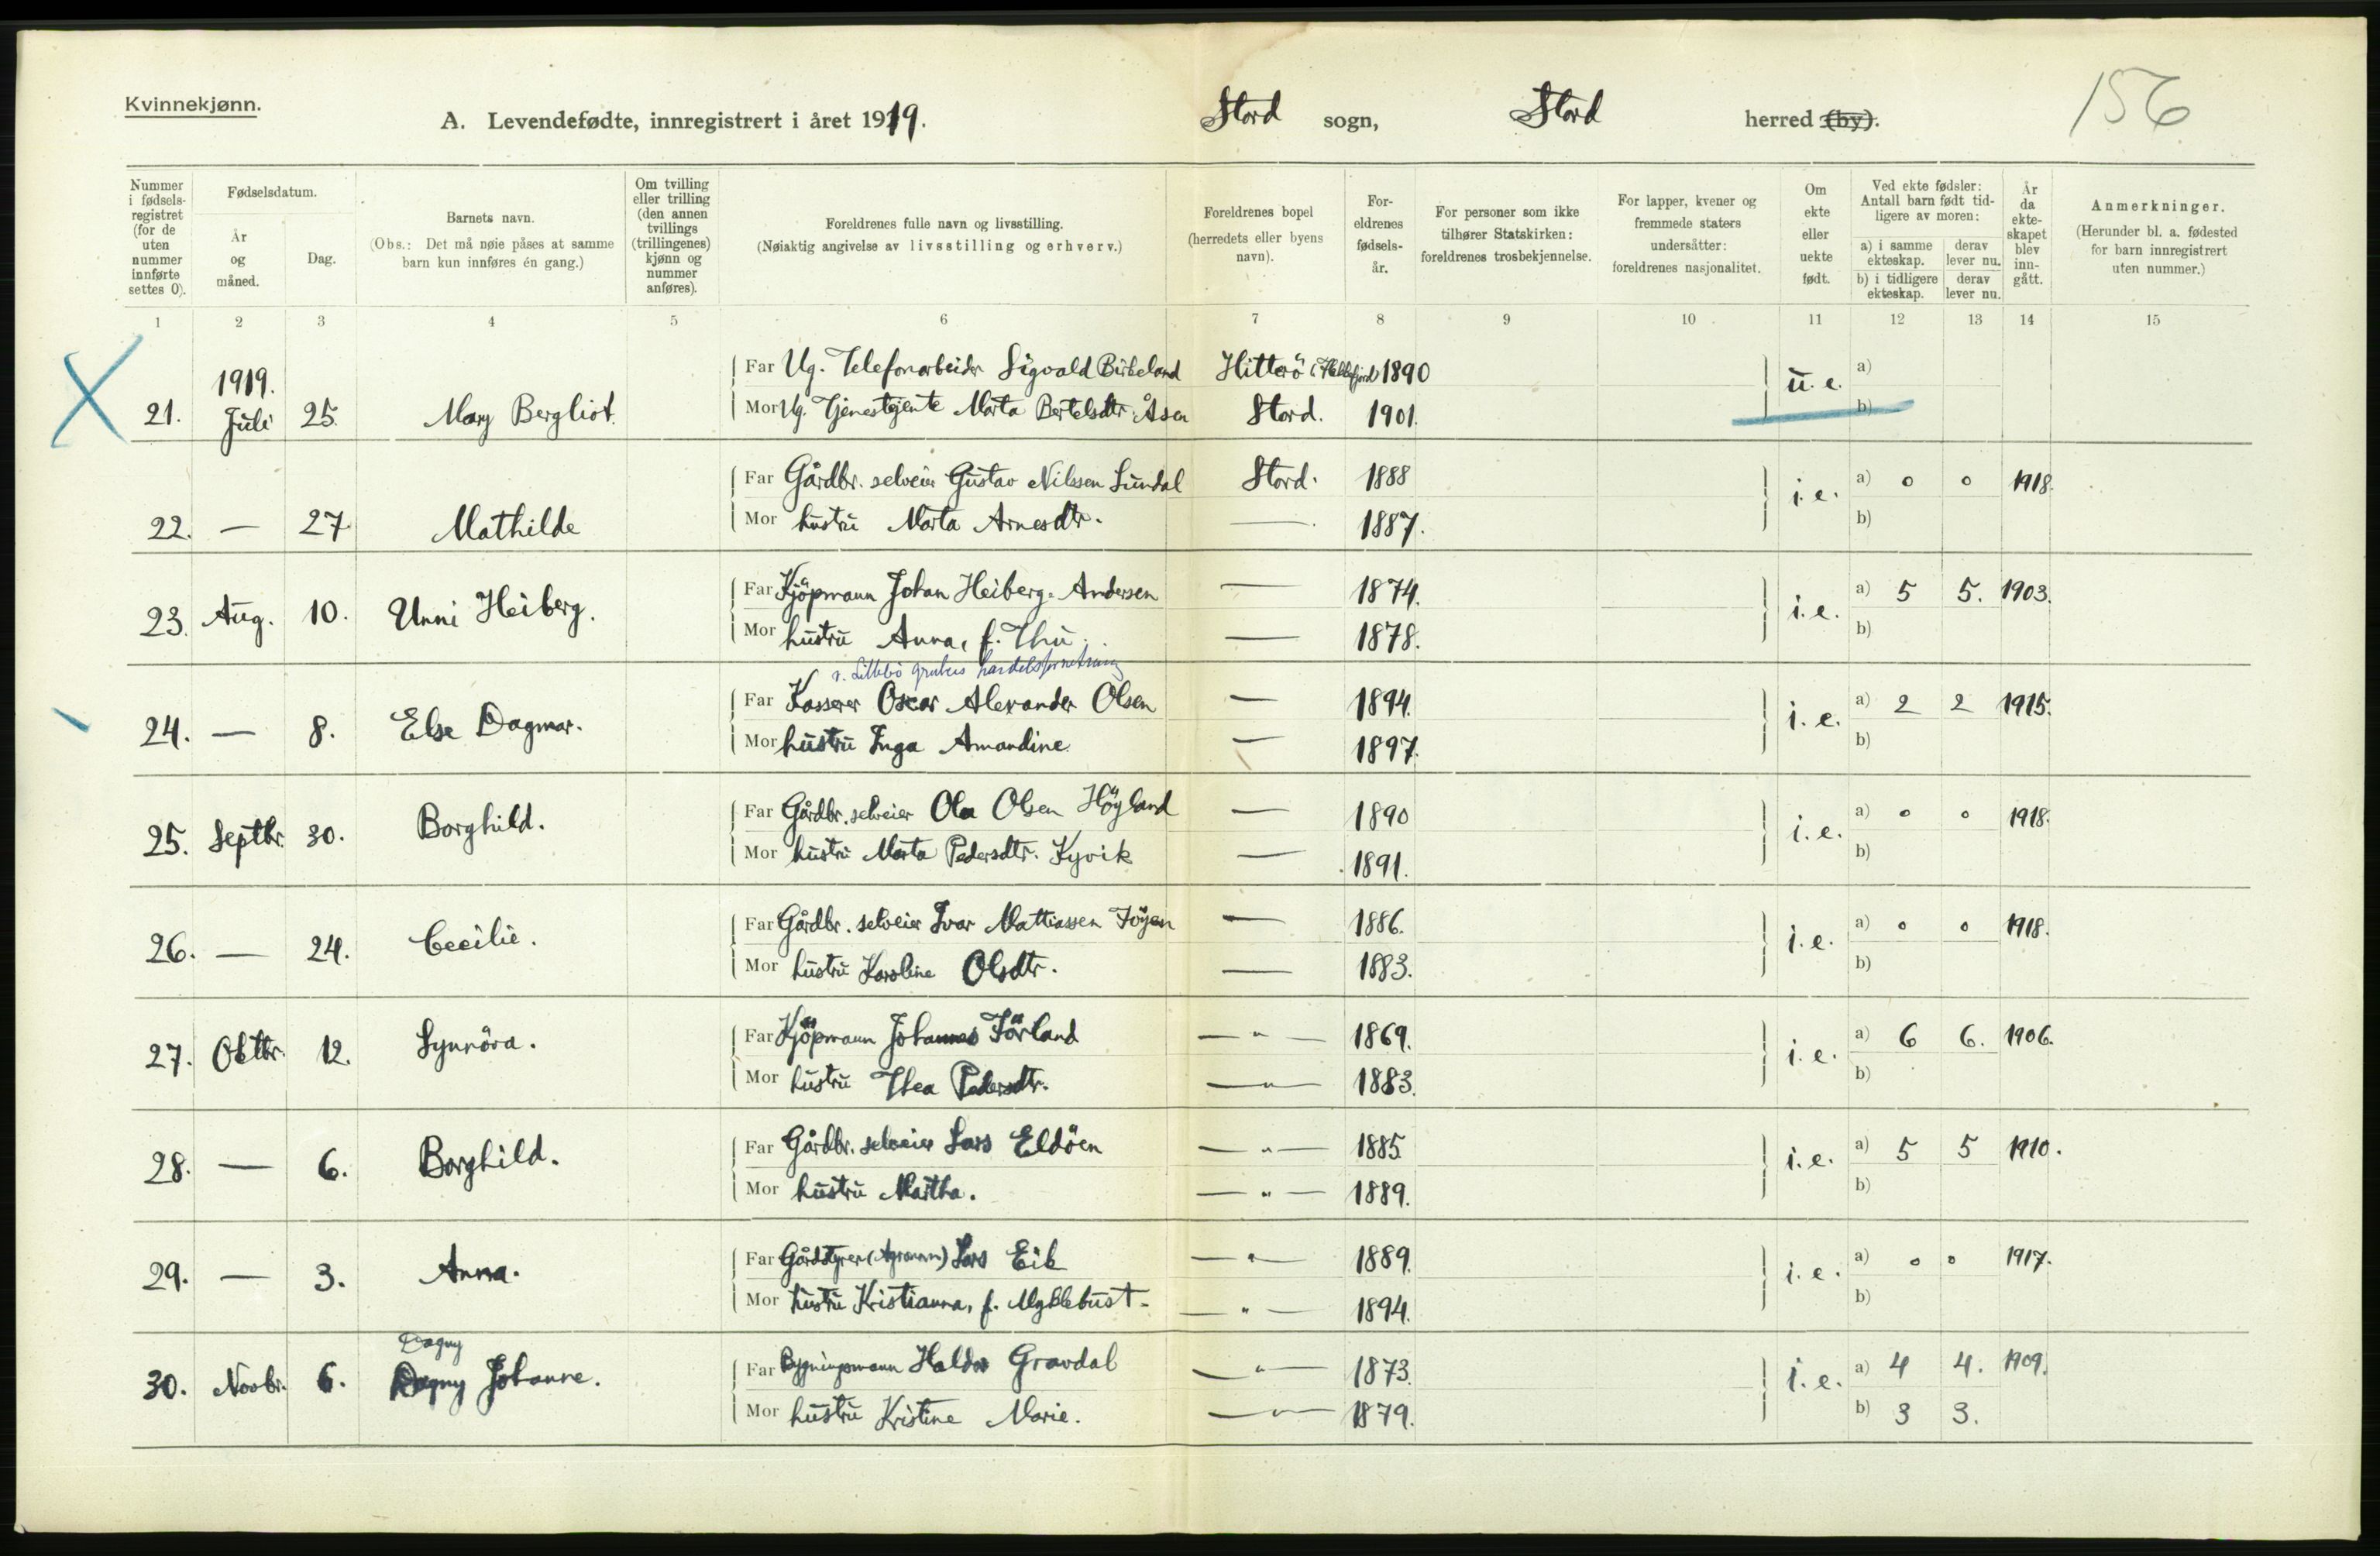 Kvinnekjønn.
A. Levendefødte, innregistrert i året 1919. Stord sogn, Stord herred (by).
156
Nummer i fødselsregistret (for de uten nummer innførte settes 0).
Fødselsdatum.
År og måned.
Dag.
Barnets navn.
(Obs.: Det må nøie påses at samme barn kun innføres én gang.)
Om tvilling eller trilling (den annen tvillings (trillingenes) kjønn og nummer anføres).
Foreldrenes fulle navn og livsstilling.
(Nøiaktig angivelse av livsstilling og erhverv.)
Foreldrenes bopel (herredets eller byens navn).
Foreldrenes fødselsår.
For personer som ikke tilhører Statskirken: foreldrenes trosbekjennelse.
For lapper, kvener og fremmede staters undersåtter: foreldrenes nasjonalitet.
Om ekte eller uekte født.
Ved ekte fødsler: Antall barn født tidligere av moren:
a) i samme ekteskap. derav lever nu.
b) i tidligere ekteskap. derav lever nu.
År da ekteskapet blev inngått.
Anmerkninger.
(Herunder bl. a. fødested for barn innregistrert uten nummer.)
1 2 3 4 5 6 7 8 9 10 11 12 13 14 15
X
1919.
Far Ug. Telefonarbeider Sigvald Birkeland Hitterö 1890 a)
21. Juli 25. Mary Bergliot. u.e.
Mor Ug. Tjenestejente Marta Bertelsdtr. Åsen Stord. 1901. b)
Far Gårdbr. selveier Gustav Nilssen Lundal Stord. 1888 a) 0 0 1918.
22. — 27. Mathilde i.e.
Mor hustru Marta Arnesdtr. — 1887. b)
Far Kjöpmann Johan Heiberg-Andersen — 1874. a) 5 5. 1903.
23. Aug. 10. Unni Heiberg. i.e.
Mor hustru Anna, f. Thu. — 1878. b)
v. Littlebö grubers handelsforretning
Far Kasserer Oscar Alexander Olsen — 1894. a) 2 2 1915.
24. — 8. Else Dagmar. i.e.
Mor hustru Inga Amandine. — 1897. b)
Far Gårdbr. selveier Ola Olsen Höyland — 1890 a) 0 0 1918.
25. Septbr. 30. Borghild. i.e.
Mor hustru Marta Pedersdtr. Kyvik — 1891. b)
Far Gårdbr. selveier Ivar Mattiassen Töyen — 1886. a) 0 0 1918.
26. — 24. Cecilie. i.e.
Mor hustru Karoline Olsdtr. — 1883. b)
Far Kjöpmann Johannes Förland — " — 1869. a) 6 6. 1906.
27. Oktbr. 12. Synnöva. i.e.
Mor hustru Thea Pedersdtr. — " — 1883. b)
Far Gårdbr. selveier Lars Eldöen — " — 1885 a) 5 5 1910.
28. — 6. Borghild. i.e.
Mor hustru Martha. — " — 1889. b)
Far Gårdstyrer (Agronom) Lars Eik — " — 1889. a) 0 0 1917.
29. — 3. Anna. i.e.
Mor hustru Kristianna, f. Myklebust. — " — 1894. b)
Dagny
Far Bygningsmann Haldor Gravdal — " — 1873. a) 4 4. 1909.
30. Novbr. 6. Dagny Johanne. i.e.
Mor hustru Kristine Marie. — " — 1879. b) 3 3.